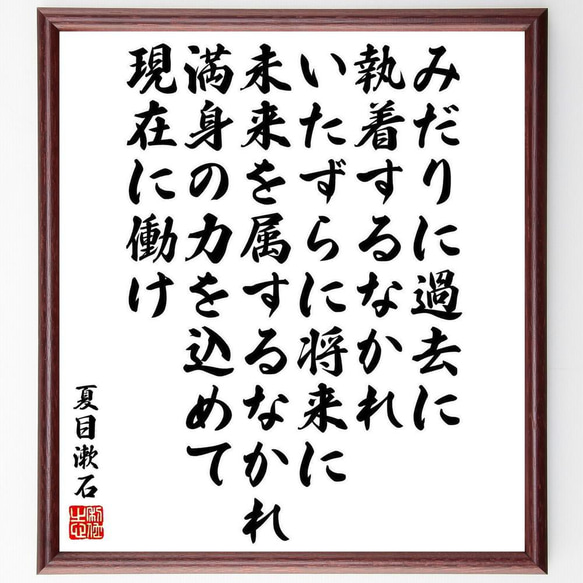 みだりに過去に
執着するなかれ
いたずらに将来に
未来を属するなかれ
満身の力を込めて
現在に働け
夏目漱石